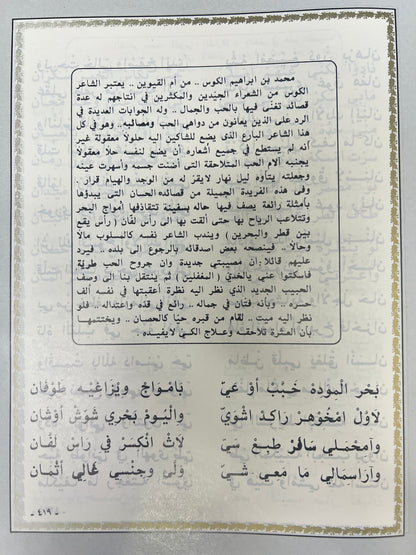 محمد بن ابراهيم الكوس .. من أم القيوين .. يعتبر الشاعر
الكوس من الشعراء الجيّدين والمكثرين في انتاجهم له عدة
قصائد تغنّى فيها بالحب والجمال .. وله الجوابات العديدة في
الرد على الذين يعانون من دواهي الحب ومصائبه .. وهو في كل
هذا الشاعر البارع الذي يضع للشاكين اليه حلولاً معقولة غير
أنه لم يستطع في جميع أشعاره أن يضع لنفسه حلاً معقولاً
يجنبه آلام الحب المتلاحقة التي أضنت جسمه وأسهرت عينه
وجعلته يتأوه ليل نهار لا يقر له من الوجد والهيام قرار .
وفى هذه الفريدة الجميلة من قصائده الحسان التى يبدؤها
بأمثلة رائعة يصف فيها حاله كسفينة تتقاذفها أمواج البحر
وتتلاعب الرياح بها حتى ألقت بها الى رأس لفّان ( رأس يقع
بين قطر والبحرين ) ويندب الشاعر نفسه كالمسلوب مالاً
وحالاً .. فينصحه بعض اصدقائه بالرجوع إلى بلده .. فيرد
عليهم قائلاً : ان مصيبتي جديدة وان جروح الحب طريّة
فاسكتوا عني يالخدي ( المغفلين ) ثم ينتقل بنا الى وصف
الحبيب الجديد الذي نظر اليه نظرة أعقبتها في نفسه ألف
حسرة .. وبأنه فتان في جماله .. رائع في قده واعتداله .. فلو
نظر اليه ميت .. لقام من قبره حيّا كالحصان .. ويختتمها
بان العثرة تلاحقه وعلاج الكي لا يفيده .
بَحْر الْمَوَدّه خَبّبْ أوْ عَيّ بَامْوَاجْ وِيْزَاغيْه طَوْفَان
لاَوّلْ امْخَوْهِرْ رَاكِدْ اشْوَيّ والْيَوْم بَحْرِي شَوْشْ أوْشَان
وِآمِحْمَلي سَافَرْ طَبِعْ سَيّ لاَشْ انْكِسَرْ في رَاسْ لَفّان
وِآرَاسمَالي مَا مَعي شَيّ وَلّى وجِنْسي غَالي أثْمَان
- ٤١٩ -